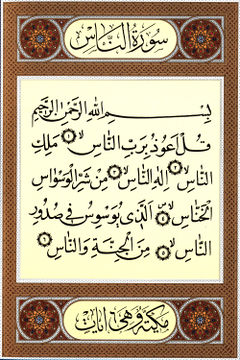 سورة الناس
بِسْمِ اللهِ الرَّحْمٰنِ الرَّحِيْمِ
قُلْ اَعُوْذُ بِرَبِّ النَّاسِ ۝١ مَلِكِ
النَّاسِ ۝٢ اِلٰهِ النَّاسِ ۝٣ مِنْ شَرِّ الْوَسْوَاسِ
الْخَنَّاسِ ۝٤ اَلَّذِيْ يُوَسْوِسُ فِيْ صُدُوْرِ
النَّاسِ ۝٥ مِنَ الْجِنَّةِ وَالنَّاسِ ۝٦
مكية وهي آيات